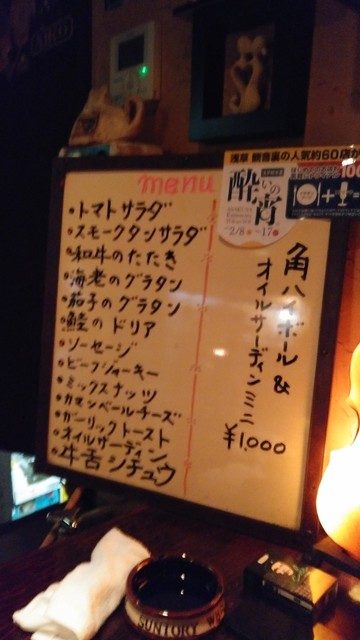 menu
・トマトサラダ
・スモークタンサラダ
・和牛のたたき
・海老のグラタン
・茄子のグラタン
・鮭のドリア
・ソーセージ
・ビーフジャーキー
・ミックスナッツ
・カマンベールチーズ
・ガーリックトースト
・オイルサーディン
・牛舌シチュウ
角ハイボール &
オイルサーディンミニ
¥1,000
浅草 観音裏の人気約60店が
酔いの宵
2/8
17
SUNTORY